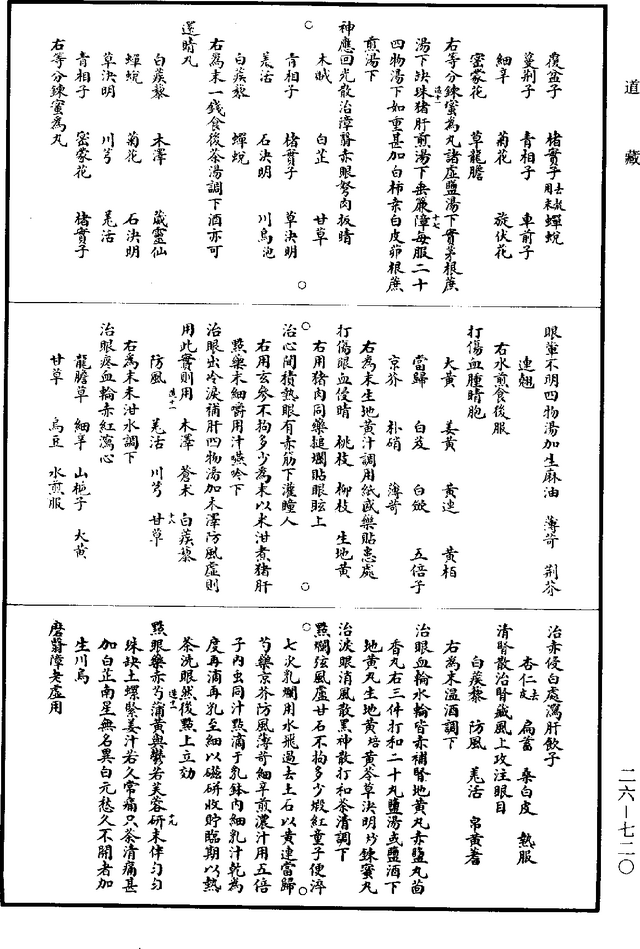 道藏
覆盆子 楮實子 蟬蛻
蔓荊子 青相子 車前子
細辛 菊花 旋伏花
密蒙花 草龍膽
右等分鍊蜜為丸諸虛鹽湯下實茅根蔗
湯下缺珠猪肝煎湯下垂簾障每服二十
四物湯下如重甚加白柿桒白皮茆根蔗
煎湯下
神應回光散治障翳赤眼弩肉扳睛
木賊 白芷 甘草
青相子 楮實子 草決明
羌活 石決明 川烏泡
白蒺藜 蟬蛻
右為末一錢食後茶湯調下酒亦可
還睛丸
白蒺藜 木澤 葳靈仙
蟬蛻 菊花 石決明
草決明 川芎 羌活
青相子 密蒙花 楮實子
右等分鍊蜜為丸
眼暈不明四物湯加生麻油 薄荷 荆芥
連翹
右水煎食後服
打傷血腫睛胞
大黃 姜黃 黃連 黃栢
當歸 白芨 白斂 五倍子
京芥 朴硝 薄荷
右為末生地黃汁調用紙盛藥貼患處
打傷眼血侵睛 桃枝 柳枝 生地黃
右用猪肉同藥搥爛貼眼眩上
治心間積熱眼有赤筋下灌瞳人
右用玄參不拘多少為末以米泔煮猪肝
點藥末細嚼用汁嚥吟下
治眼出冷淚補肝四物湯加木澤防風虛則
用此實則用 木澤 蒼朮 白蒺藜
防風 羌活 川芎 甘草
右為末米泔水調下
治眼疼血輪赤紅瀉心
龍膽草 細辛 山梔子 大黃
甘草 烏豆 水煎服
治赤侵白處瀉肝飲子
杏仁去皮 扁蓄 桑白皮 熟服
清腎散治腎藏風上攻注眼目
白蒺藜 防風 羌活 帛黃耆
右為末溫酒調下
治眼血輪水輪皆赤補腎地黃丸赤鹽丸茴
香丸右三件打和二十丸鹽湯或鹽酒下
地黃丸生地黃焙黃芩草決明炒鍊蜜丸
治淚眼消風散黑神散打和茶清調下
點爛弦風虛甘石不拘多少煆紅童子便淬
七次乳爛用水飛過去土石以黃連當歸
芍藥京芥防風薄荷細辛煎濃汁用五倍
子內虫同汁點滴于乳鉢內細乳汁乾為
度再滴再乳至細以磁硏收貯臨期以熱
茶洗眼然後點上立効
點眼藥赤芍蒲黃與鬱若芙蓉研末伴勻勻
珠缺土螺緊姜汁若久常痛只茶清痛甚
加白芷南星無名異白元愁久不開者加
生川烏
磨翳障老虛用
二六—七二〇